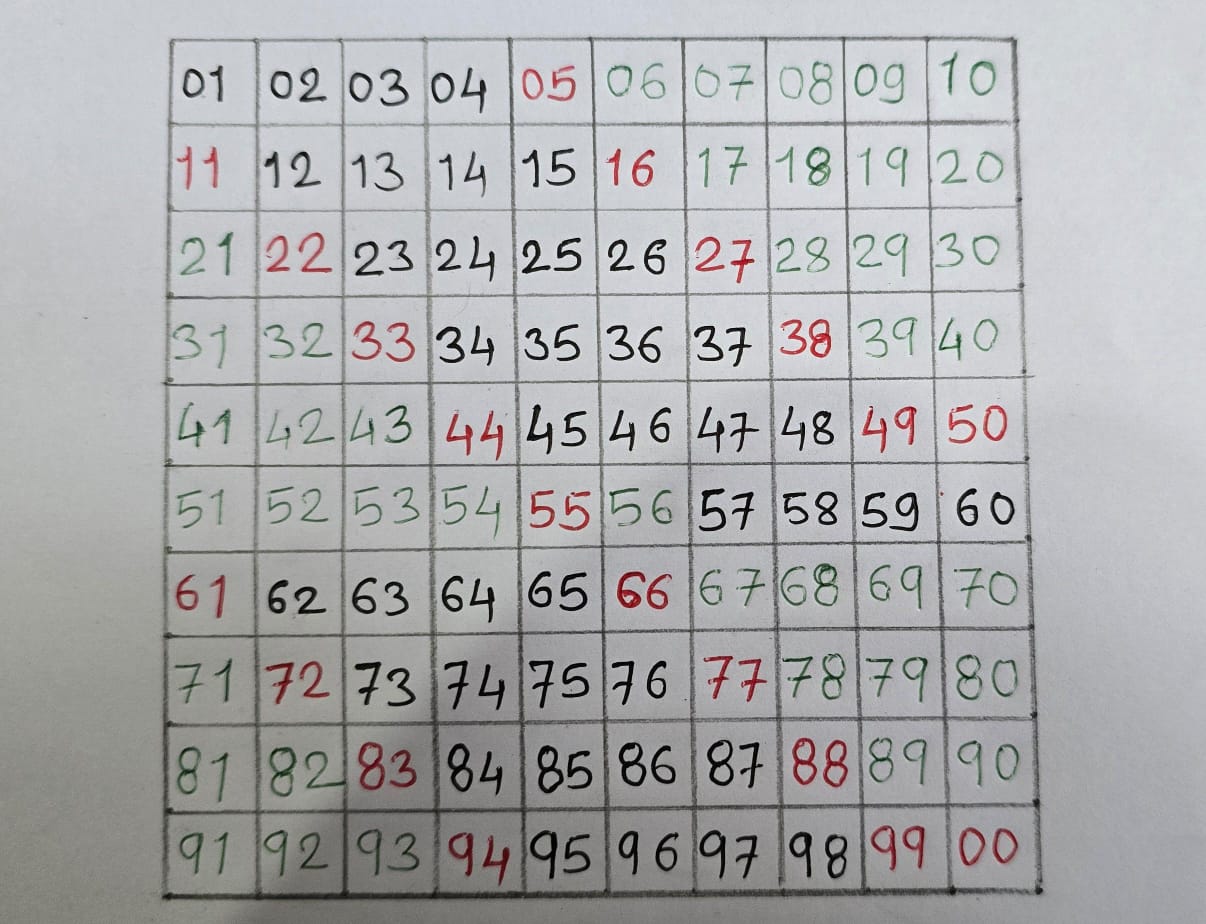 01 02 03 04 05 06 07 08 09 10
11 12 13 14 15 16 17 18 19 20
21 22 23 24 25 26 27 28 29 30
31 32 33 34 35 36 37 38 39 40
41 42 43 44 45 46 47 48 49 50
51 52 53 54 55 56 57 58 59 60
61 62 63 64 65 66 67 68 69 70
71 72 73 74 75 76 77 78 79 80
81 82 83 84 85 86 87 88 89 90
91 92 93 94 95 96 97 98 99 00